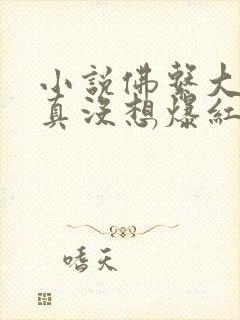 小說佛繫大
真沒想爆紅
嗜天